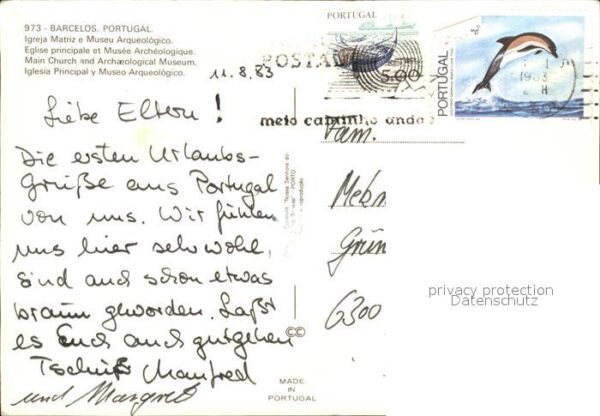 973 - BARCELOS. PORTUGAL.
Igreja Matriz e Museu Arqueológico.
Eglise principale et Musée Archéologique.
Main Church and Archæological Museum.
Iglesia Principal y Museo Arqueológico.
11.8.83
Liebe Eltern!
Die ersten Urlaubs-
Grüße aus Portugal
von uns. Wir fühlen
uns hier sehr wohl,
sind auch schon etwas
braun geworden. Laßt
es Euch auch gutgehen
Tschüß Manfred
und Margret
PORTUGAL
5.00
POSTAL
PORTUGAL
meio caminho anda
Fam.
Grün
6300
privacy protection
Datenschutz
MADE
IN
PORTUGAL